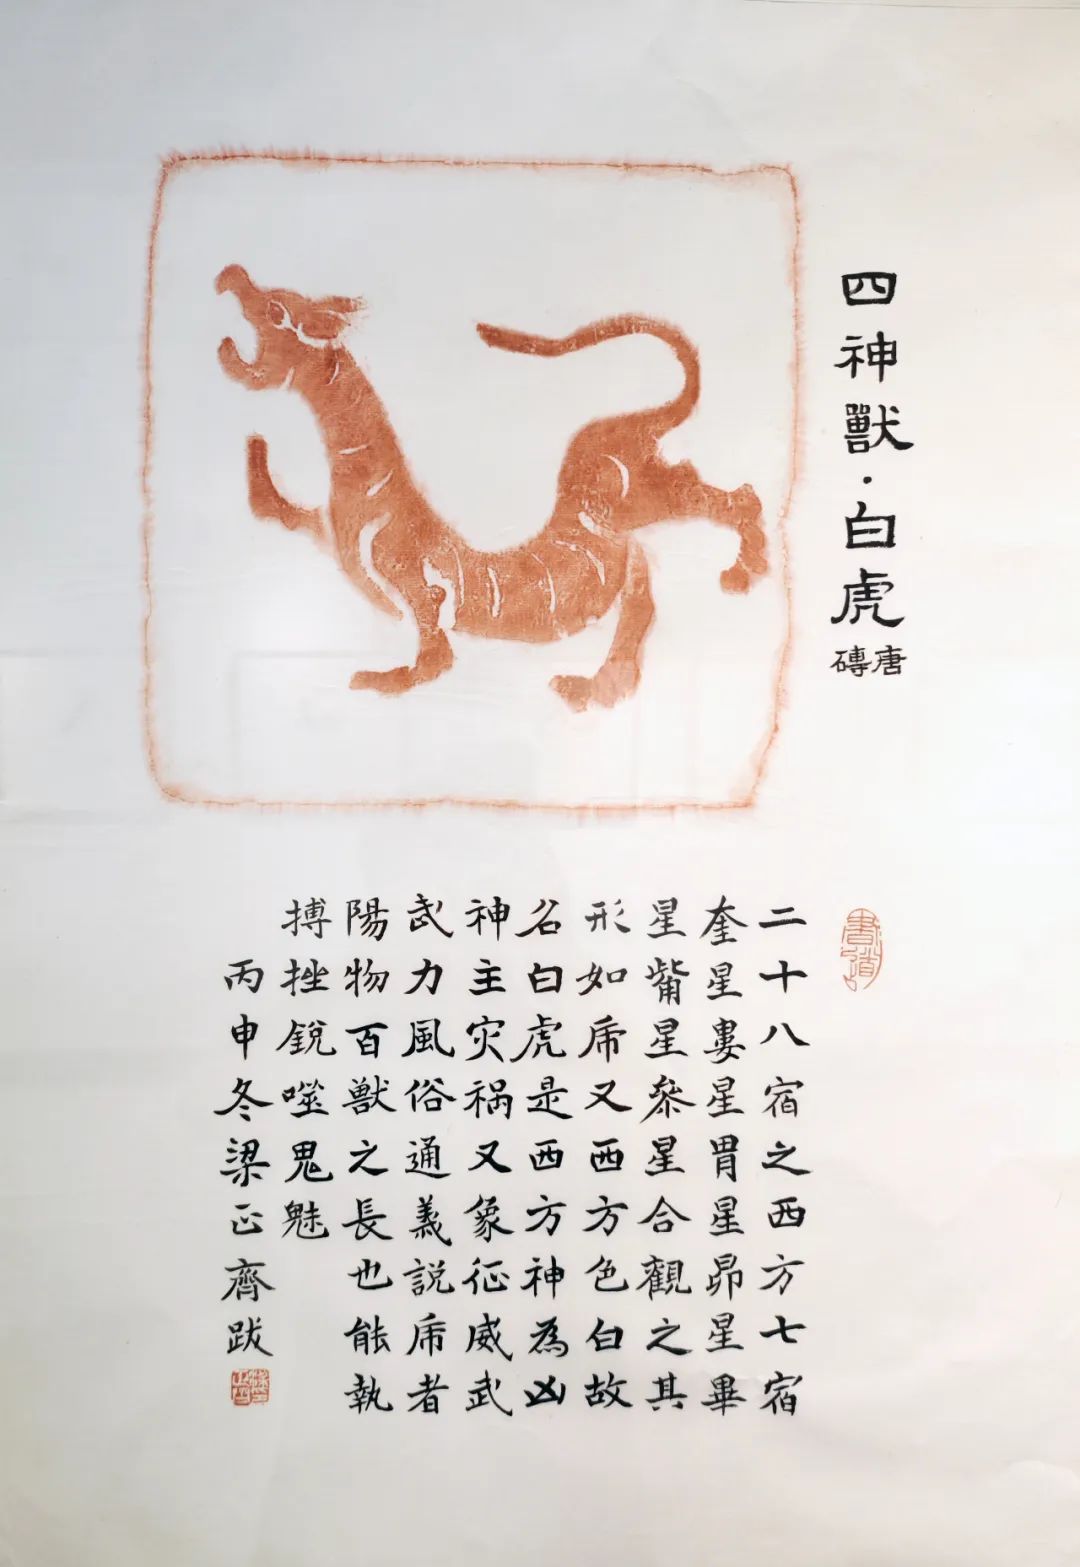 四神獸·白虎
唐
磚
書道
二十八宿之西方七宿
奎星婁星胃星昴星畢
星觜星參星合觀之其
形如虎又西方色白故
名白虎是西方神為凶
神主灾祸又象征威武
武力風俗通義説虎者
陽物百獸之長也能執
搏挫銳噬鬼魅
丙申冬梁正齊跋